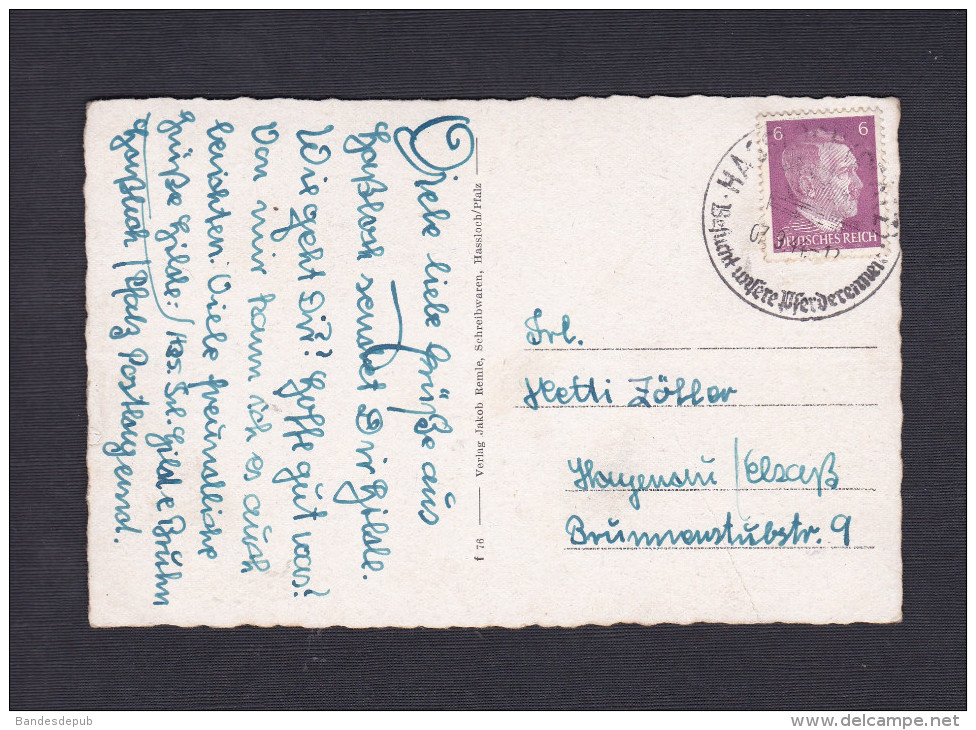 Viele liebe Grüße aus
Haßloch sendet Dir Hilde.
Wie geht Dir? Hoffe gut was?
Von mir kann ich es auch
berichten. Viele freundliche
Grüße Hilde:/Abs. Frl. Hilde Bruhn
Haßloch / Pfalz Postlagernd.
f 76 Verlag Jakob Remle, Schreibwaren, Hassloch/Pfalz
6 6
DEUTSCHES REICH
Besucht unsere Pferderennen
Frl.
Hetti Zöller
Hagenau / Elsaß
Brunnenstubstr. 9
Bandesdepub
www.delcampe.net